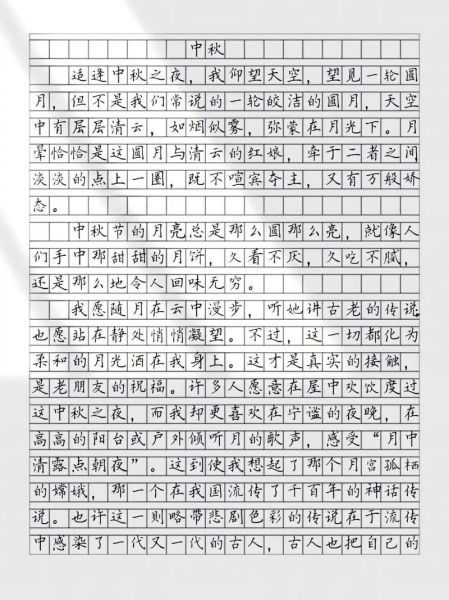 中秋
适逢中秋之夜，我仰望天空，望见一轮圆
月，但不是我们常说的一轮皎洁的圆月，天空
中有层层清云，如烟似雾，弥蒙在月光下。月
晕恰恰是这圆月与清云的红娘，牵于二者之间
淡淡的点上一圈，既不喧宾夺主，又有万般娇
态。
中秋节的月亮总是那么圆那么亮，就像人
们手中那甜甜的月饼，久看不厌，久吃不腻，
还是那么地令人回味无穷。
我愿随月在云中漫步，听她讲古老的传说
也愿站在静处悄悄凝望。不过，这一切都化为
柔和的月光洒在我身上。这才是真实的接触，
是老朋友的祝福。许多人愿意在屋中欢饮度过
这中秋之夜，而我却更喜欢在宁谧的夜晚，在
高高的阳台或户外倾听月的歌声，感受“月中
清露点朝夜”。这到使我想起了那个月宫孤栖
的嫦娥，那一个在我国流传了千百年的神话传
说。也许这一则略带悲剧色彩的传说在于流传
中感染了一代又一代的古人，古人也把自己的